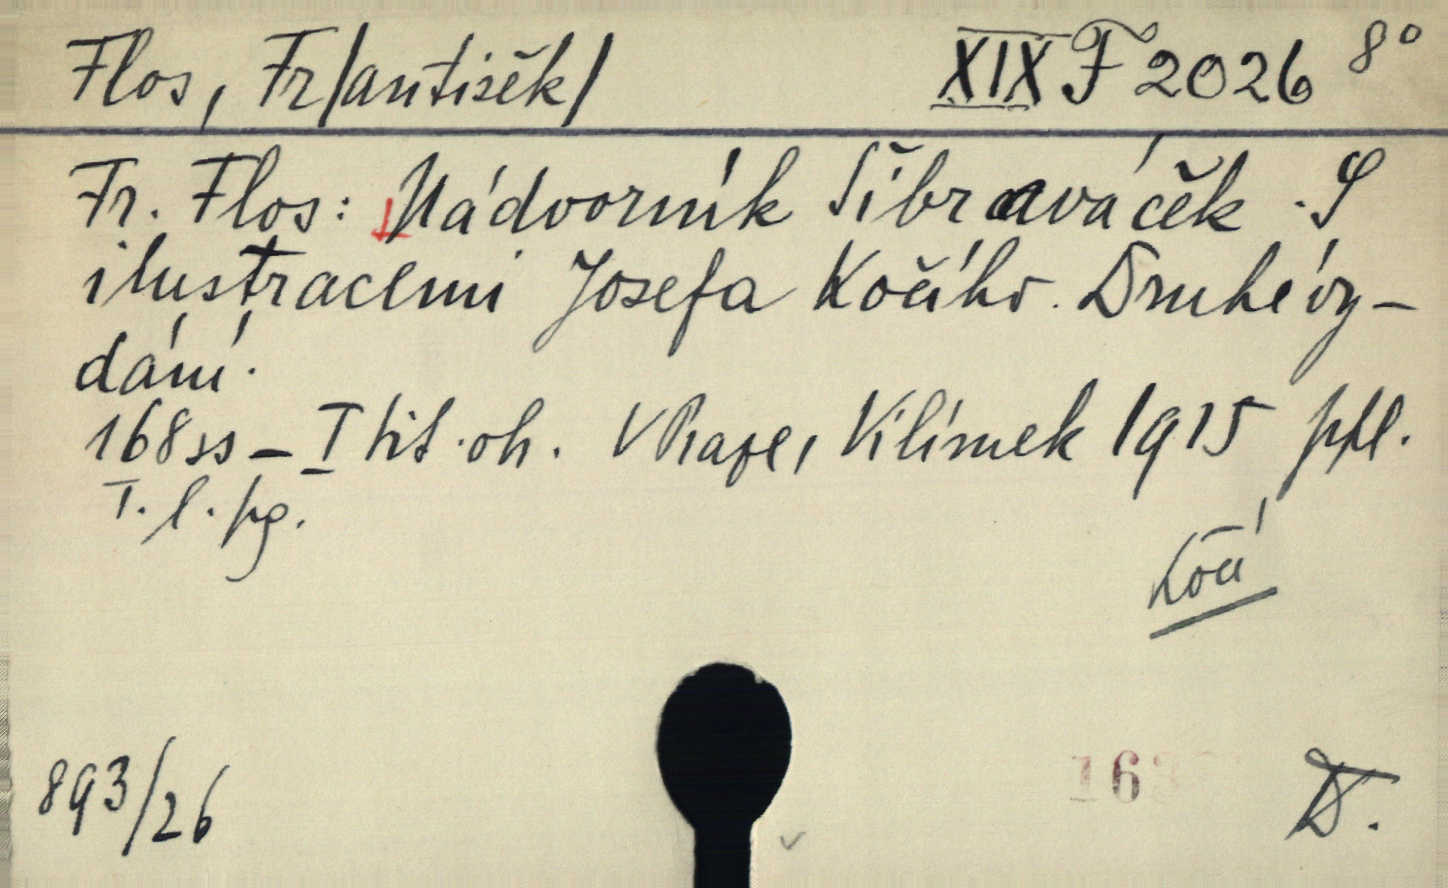 Flos, Fr/antišek/ XIX F 2026 8°
Fr. Flos: Nádvorník Šíbraváček. S
ilustracemi Josefa Kočího. Druhé vy-
dání.
168 ss – I tit. ob. V Praze, Vilímek 1915 ppl.
T. l. pg.
Kočí
893/26
D.